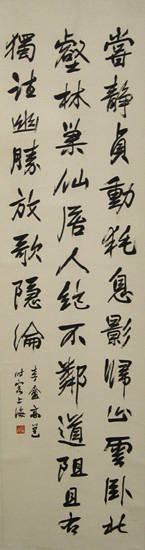 靜貞動耗息影歸山雲卧北
壑林巢仙居人絕不鄰道阻且右
獨幽勝放歌隱淪
時客上海